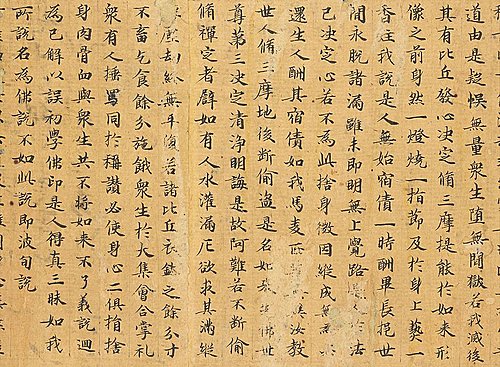 道由是疑悞無量衆生墮無閒獄若我滅後
其有比丘發心決定脩三摩提能於如來形
像之前身然一燈燒一指節及於身上爇一
香炷我說是人無始宿債一時酬畢長挹世
閒永脫諸漏雖未即明無上覺路是人於法
已決定心若不為此捨身微因縱成無為
還生人酬其宿債如我馬麥汝教
世人脩三摩地後斷偷盜是名如來佛世
尊第三決定清淨明誨是故阿難若不斷偷
脩禪定者譬如有人水灌漏巵欲求其滿縱
塵劫終無平復若諸比丘衣鉢之餘分寸
不畜乞食餘分施餓衆生於大集會合掌礼
衆有人捶詈同於稱讃必使身心二俱捐捨
身肉骨血與衆生共不將如來不了義說迴
為已解以誤初學佛印是人得真三昧如我
所說名為佛說不如此說即波旬說